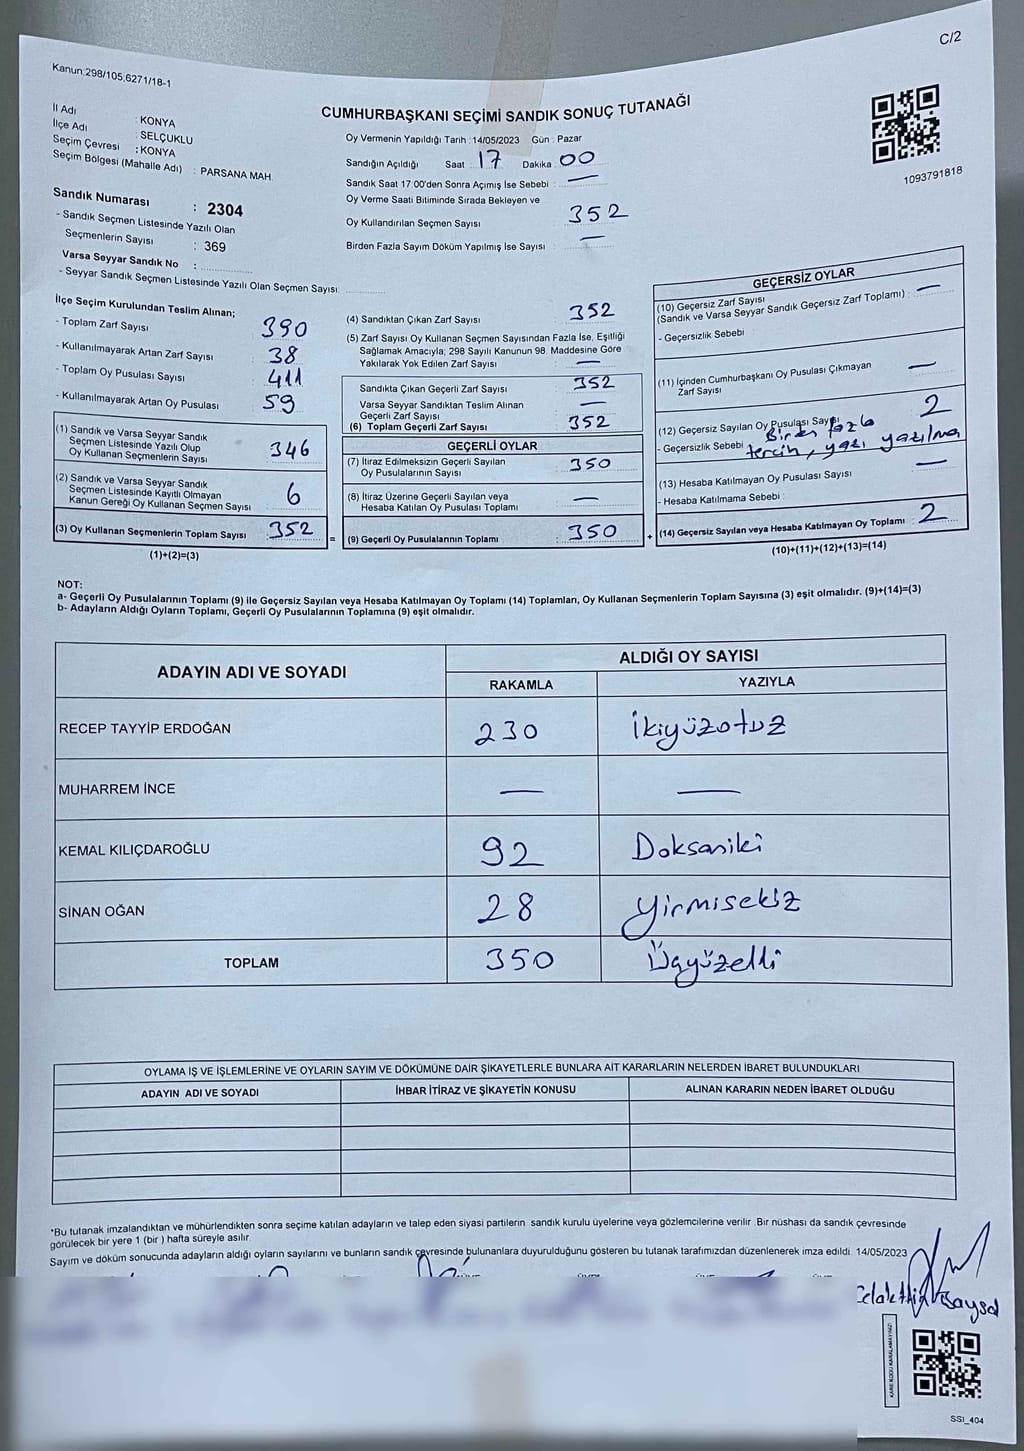 C/2
Kanun:298/105,6271/18-1
CUMHURBAŞKANI SEÇİMİ SANDIK SONUÇ TUTANAĞI
İl Adı : KONYA
İlçe Adı : SELÇUKLU
Seçim Çevresi : KONYA
Seçim Bölgesi (Mahalle Adı) : PARSANA MAH.
Sandık Numarası : 2304
- Sandık Seçmen Listesinde Yazılı Olan
Seçmenlerin Sayısı : 369
Varsa Seyyar Sandık No :
- Seyyar Sandık Seçmen Listesinde Yazılı Olan Seçmen Sayısı:
Oy Vermenin Yapıldığı Tarih : 14/05/2023 Gün : Pazar
Sandığın Açıldığı Saat : 17 Dakika : 00
Sandık Saat 17:00'den Sonra Açımış İse Sebebi : —
Oy Verme Saati Bitiminde Sırada Bekleyen ve
Oy Kullandırılan Seçmen Sayısı : 352
Birden Fazla Sayım Döküm Yapılmış İse Sayısı : —
1093791818
İlçe Seçim Kurulundan Teslim Alınan;
- Toplam Zarf Sayısı : 390
- Kullanılmayarak Artan Zarf Sayısı : 38
- Toplam Oy Pusulası Sayısı : 411
- Kullanılmayarak Artan Oy Pusulası : 59
(1) Sandık ve Varsa Seyyar Sandık
Seçmen Listesinde Yazılı Olup
Oy Kullanan Seçmenlerin Sayısı : 346
(2) Sandık ve Varsa Seyyar Sandık
Seçmen Listesinde Kayıtlı Olmayan
Kanun Gereği Oy Kullanan Seçmen Sayısı : 6
(3) Oy Kullanan Seçmenlerin Toplam Sayısı : 352
(1)+(2)=(3)
=
(4) Sandıktan Çıkan Zarf Sayısı : 352
(5) Zarf Sayısı Oy Kullanan Seçmen Sayısından Fazla İse, Eşitliği
Sağlamak Amacıyla; 298 Sayılı Kanunun 98. Maddesine Göre
Yakılarak Yok Edilen Zarf Sayısı : —
Sandıkta Çıkan Geçerli Zarf Sayısı : 352
Varsa Seyyar Sandıktan Teslim Alınan
Geçerli Zarf Sayısı : —
(6) Toplam Geçerli Zarf Sayısı : 352
GEÇERLİ OYLAR
(7) İtiraz Edilmeksizin Geçerli Sayılan
Oy Pusulalarının Sayısı : 350
(8) İtiraz Üzerine Geçerli Sayılan veya
Hesaba Katılan Oy Pusulası Toplamı : —
(9) Geçerli Oy Pusulalarının Toplamı : 350
+
GEÇERSİZ OYLAR
(10) Geçersiz Zarf Sayısı
(Sandık ve Varsa Seyyar Sandık Geçersiz Zarf Toplamı) : —
- Geçersizlik Sebebi :
(11) İçinden Cumhurbaşkanı Oy Pusulası Çıkmayan
Zarf Sayısı : —
(12) Geçersiz Sayılan Oy Pusulası Sayısı : 2
- Geçersizlik Sebebi : Birden fazla
tercih, yazı yazılma
(13) Hesaba Katılmayan Oy Pusulası Sayısı : —
- Hesaba Katılmama Sebebi :
(14) Geçersiz Sayılan veya Hesaba Katılmayan Oy Toplamı : 2
(10)+(11)+(12)+(13)=(14)
NOT:
a- Geçerli Oy Pusulalarının Toplamı (9) ile Geçersiz Sayılan veya Hesaba Katılmayan Oy Toplamı (14) Toplamları, Oy Kullanan Seçmenlerin Toplam Sayısına (3) eşit olmalıdır. (9)+(14)=(3)
b- Adayların Aldığı Oyların Toplamı, Geçerli Oy Pusulalarının Toplamına (9) eşit olmalıdır.
ADAYIN ADI VE SOYADI ALDIĞI OY SAYISI
RAKAMLA YAZIYLA
RECEP TAYYİP ERDOĞAN 230 ikiyüzotuz
MUHARREM İNCE — —
KEMAL KILIÇDAROĞLU 92 Doksaniki
SİNAN OĞAN 28 Yirmisekiz
TOPLAM 350 Üçyüzelli
OYLAMA İŞ VE İŞLEMLERİNE VE OYLARIN SAYIM VE DÖKÜMÜNE DAİR ŞİKAYETLERLE BUNLARA AİT KARARLARIN NELERDEN İBARET BULUNDUKLARI
ADAYIN ADI VE SOYADI İHBAR İTİRAZ VE ŞİKAYETİN KONUSU ALINAN KARARIN NEDEN İBARET OLDUĞU
*Bu tutanak imzalandıktan ve mühürlendikten sonra seçime katılan adayların ve talep eden siyasi partilerin sandık kurulu üyelerine veya gözlemcilerine verilir. Bir nüshası da sandık çevresinde
görülecek bir yere 1 (bir ) hafta süreyle asılır.
Sayım ve döküm sonucunda adayların aldığı oyların sayılarını ve bunların sandık çevresinde bulunanlara duyurulduğunu gösteren bu tutanak tarafımızdan düzenlenerek imza edildi. 14/05/2023
KARE KODU KARALAMAYINIZ!
SSI_404